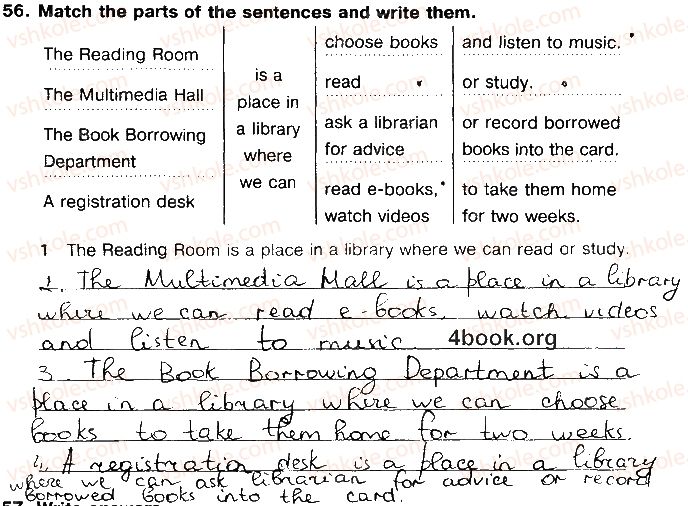 56. Match the parts of the sentences and write them.
The Reading Room
The Multimedia Hall
The Book Borrowing
Department
A registration desk
is a
place in
a library
where
we can
choose books
read
ask a librarian
for advice
read e-books,
watch videos
and listen to music.
or study.
or record borrowed
books into the card.
to take them home
for two weeks.
1 The Reading Room is a place in a library where we can read or study.
2. The Multimedia Hall is a place in a library
where we can read e-books, watch videos
and listen to music.
4book.org
3. The Book Borrowing Department is a
place in a library where we can choose
books to take them home for two weeks.
4. A registration desk is a place in a library
where we can ask librarian for advice or record
borrowed books into the card.
vshkole.com